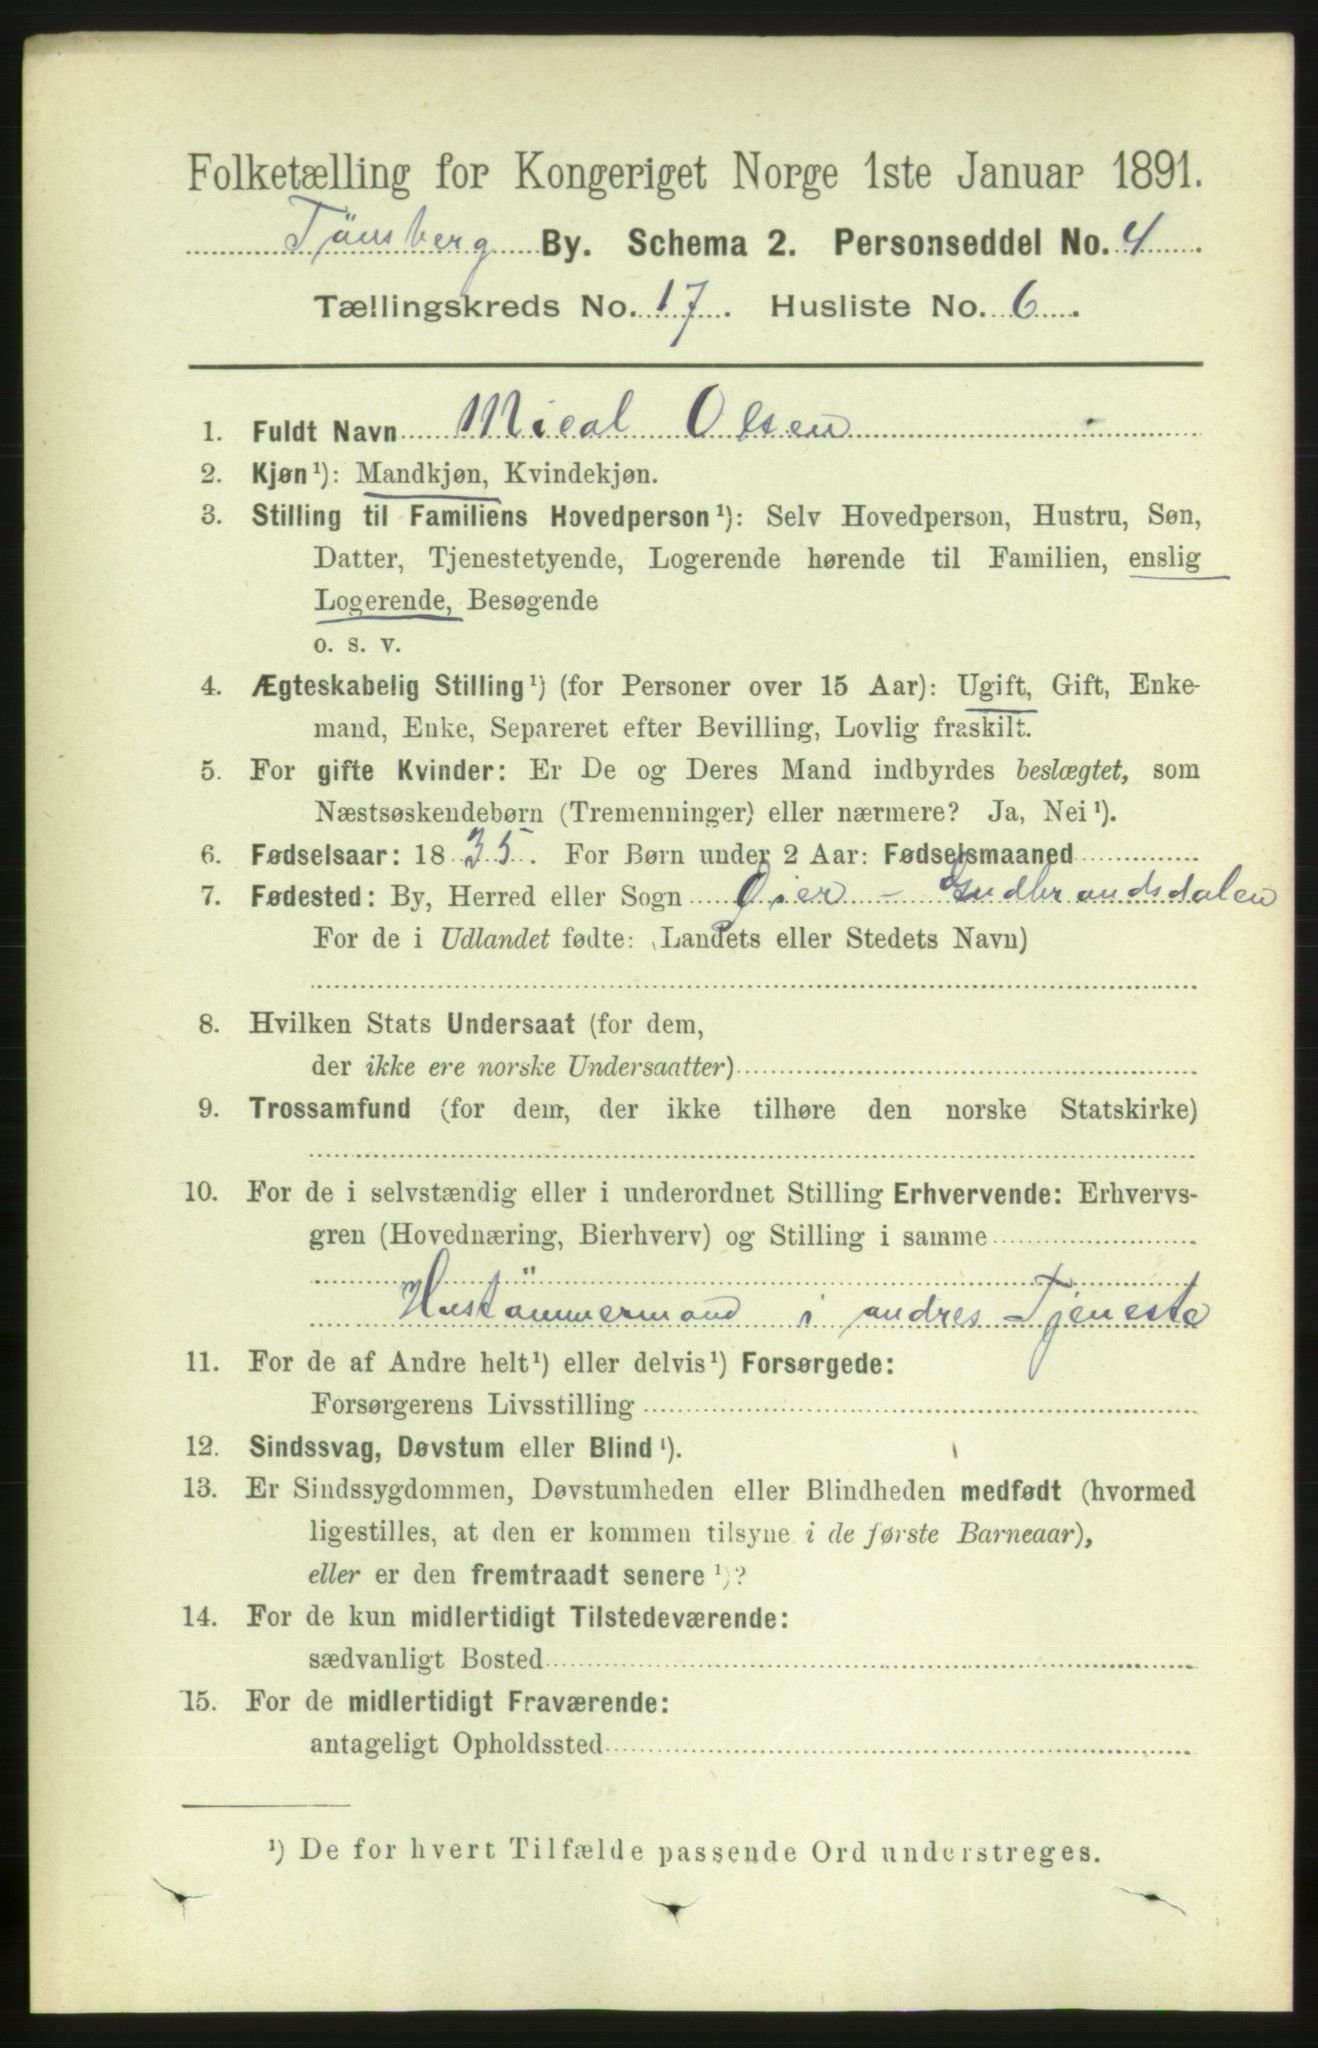 Folketælling for Kongeriget Norge 1ste Januar 1891.
Tönsberg By. Schema 2. Personseddel No. 4.
Tællingskreds No. 17. Husliste No. 6.
1. Fuldt Navn Mical Olsen
2. Kjøn¹): Mandkjøn, Kvindekjøn.
3. Stilling til Familiens Hovedperson¹): Selv Hovedperson, Hustru, Søn,
Datter, Tjenestetyende, Logerende hørende til Familien, enslig
Logerende, Besøgende
o. s. v.
4. Ægteskabelig Stilling¹) (for Personer over 15 Aar): Ugift, Gift, Enke-
mand, Enke, Separeret efter Bevilling, Lovlig fraskilt.
5. For gifte Kvinder: Er De og Deres Mand indbyrdes beslægtet, som
Næstsøskendebørn (Tremenninger) eller nærmere? Ja, Nei¹).
6. Fødselsaar: 1835. For Børn under 2 Aar: Fødselsmaaned
7. Fødested: By, Herred eller Sogn Øier - Gudbrandsdalen
For de i Udlandet fødte: (Landets eller Stedets Navn)
8. Hvilken Stats Undersaat (for dem,
der ikke ere norske Undersaatter)
9. Trossamfund (for dem, der ikke tilhøre den norske Statskirke)
10. For de i selvstændig eller i underordnet Stilling Erhvervende: Erhvervs-
gren (Hovednæring, Bierhverv) og Stilling i samme
Hustömmermand i andres Tjeneste
11. For de af Andre helt¹) eller delvis¹) Forsørgede:
Forsørgerens Livsstilling
12. Sindssvag, Døvstum eller Blind¹).
13. Er Sindssygdommen, Døvstumheden eller Blindheden medfødt (hvormed
ligestilles, at den er kommen tilsyne i de første Barneaar),
eller er den fremtraadt senere¹)?
14. For de kun midlertidigt Tilstedeværende:
sædvanligt Bosted
15. For de midlertidigt Fraværende:
antageligt Opholdssted
¹) De for hvert Tilfælde passende Ord understreges.